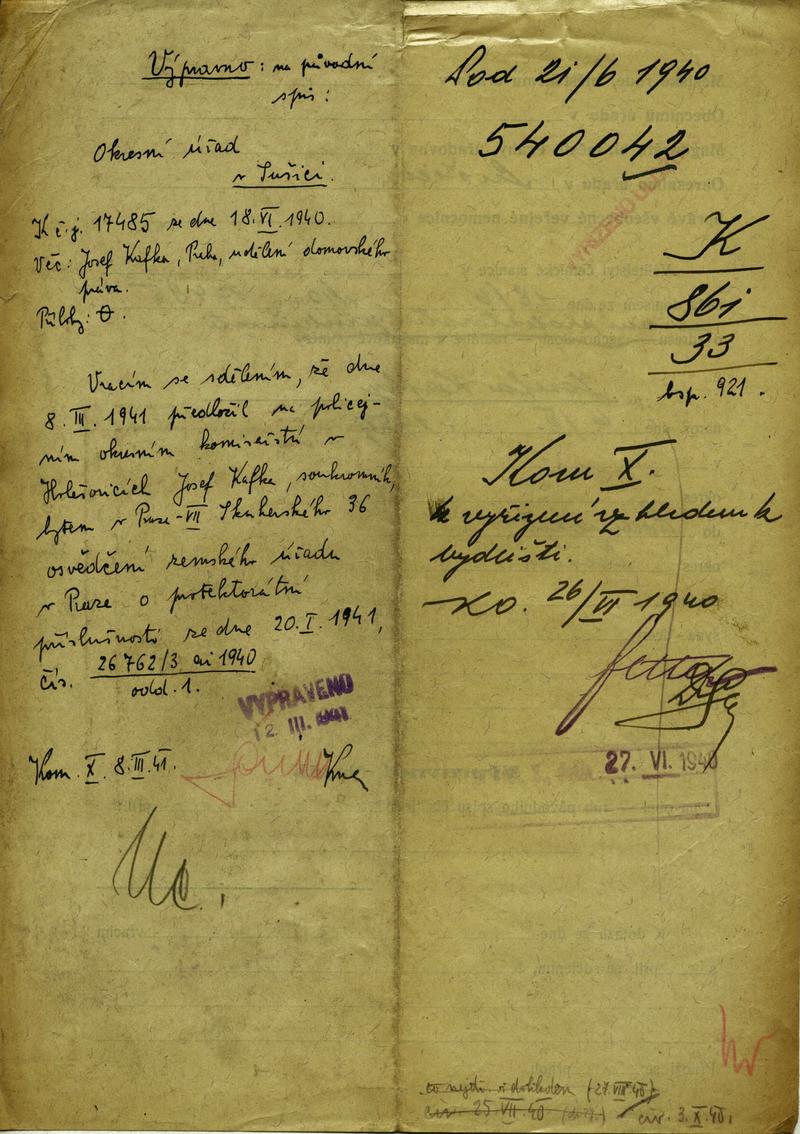 Výpravno: na původní
spis:
Okresní úřad
v Sušici.
K č.j. 17485 ze dne 18.VI.1940.
Věc: Josef Kafka, Praha, udělení domovského
práva.
Přílohy: 0.
Vracím se sdělením, že dne
8.III.1941 předložil na policej-
ním okresním komisařství v
Holešovicích Josef Kafka, soukromník,
bytem v Praze-VII Skuherského 36
osvědčení zemského úřadu
v Praze o protektorátní
příslušnosti ze dne 20.I.1941,
čís. 26762/3 ai 1940
odd. 1.
VYPRAVENO
12 III. 1941
Kom. X. 8.III.41.
Pod 21/6 1940
540042
K
861
33
bsp. 921.
Kom X.
k vyřízení vzhledem k
bydlišti.
26/VI 1940
27. VI. 1940
(27.VIII 40)
25 VII. 40
3.X.40.